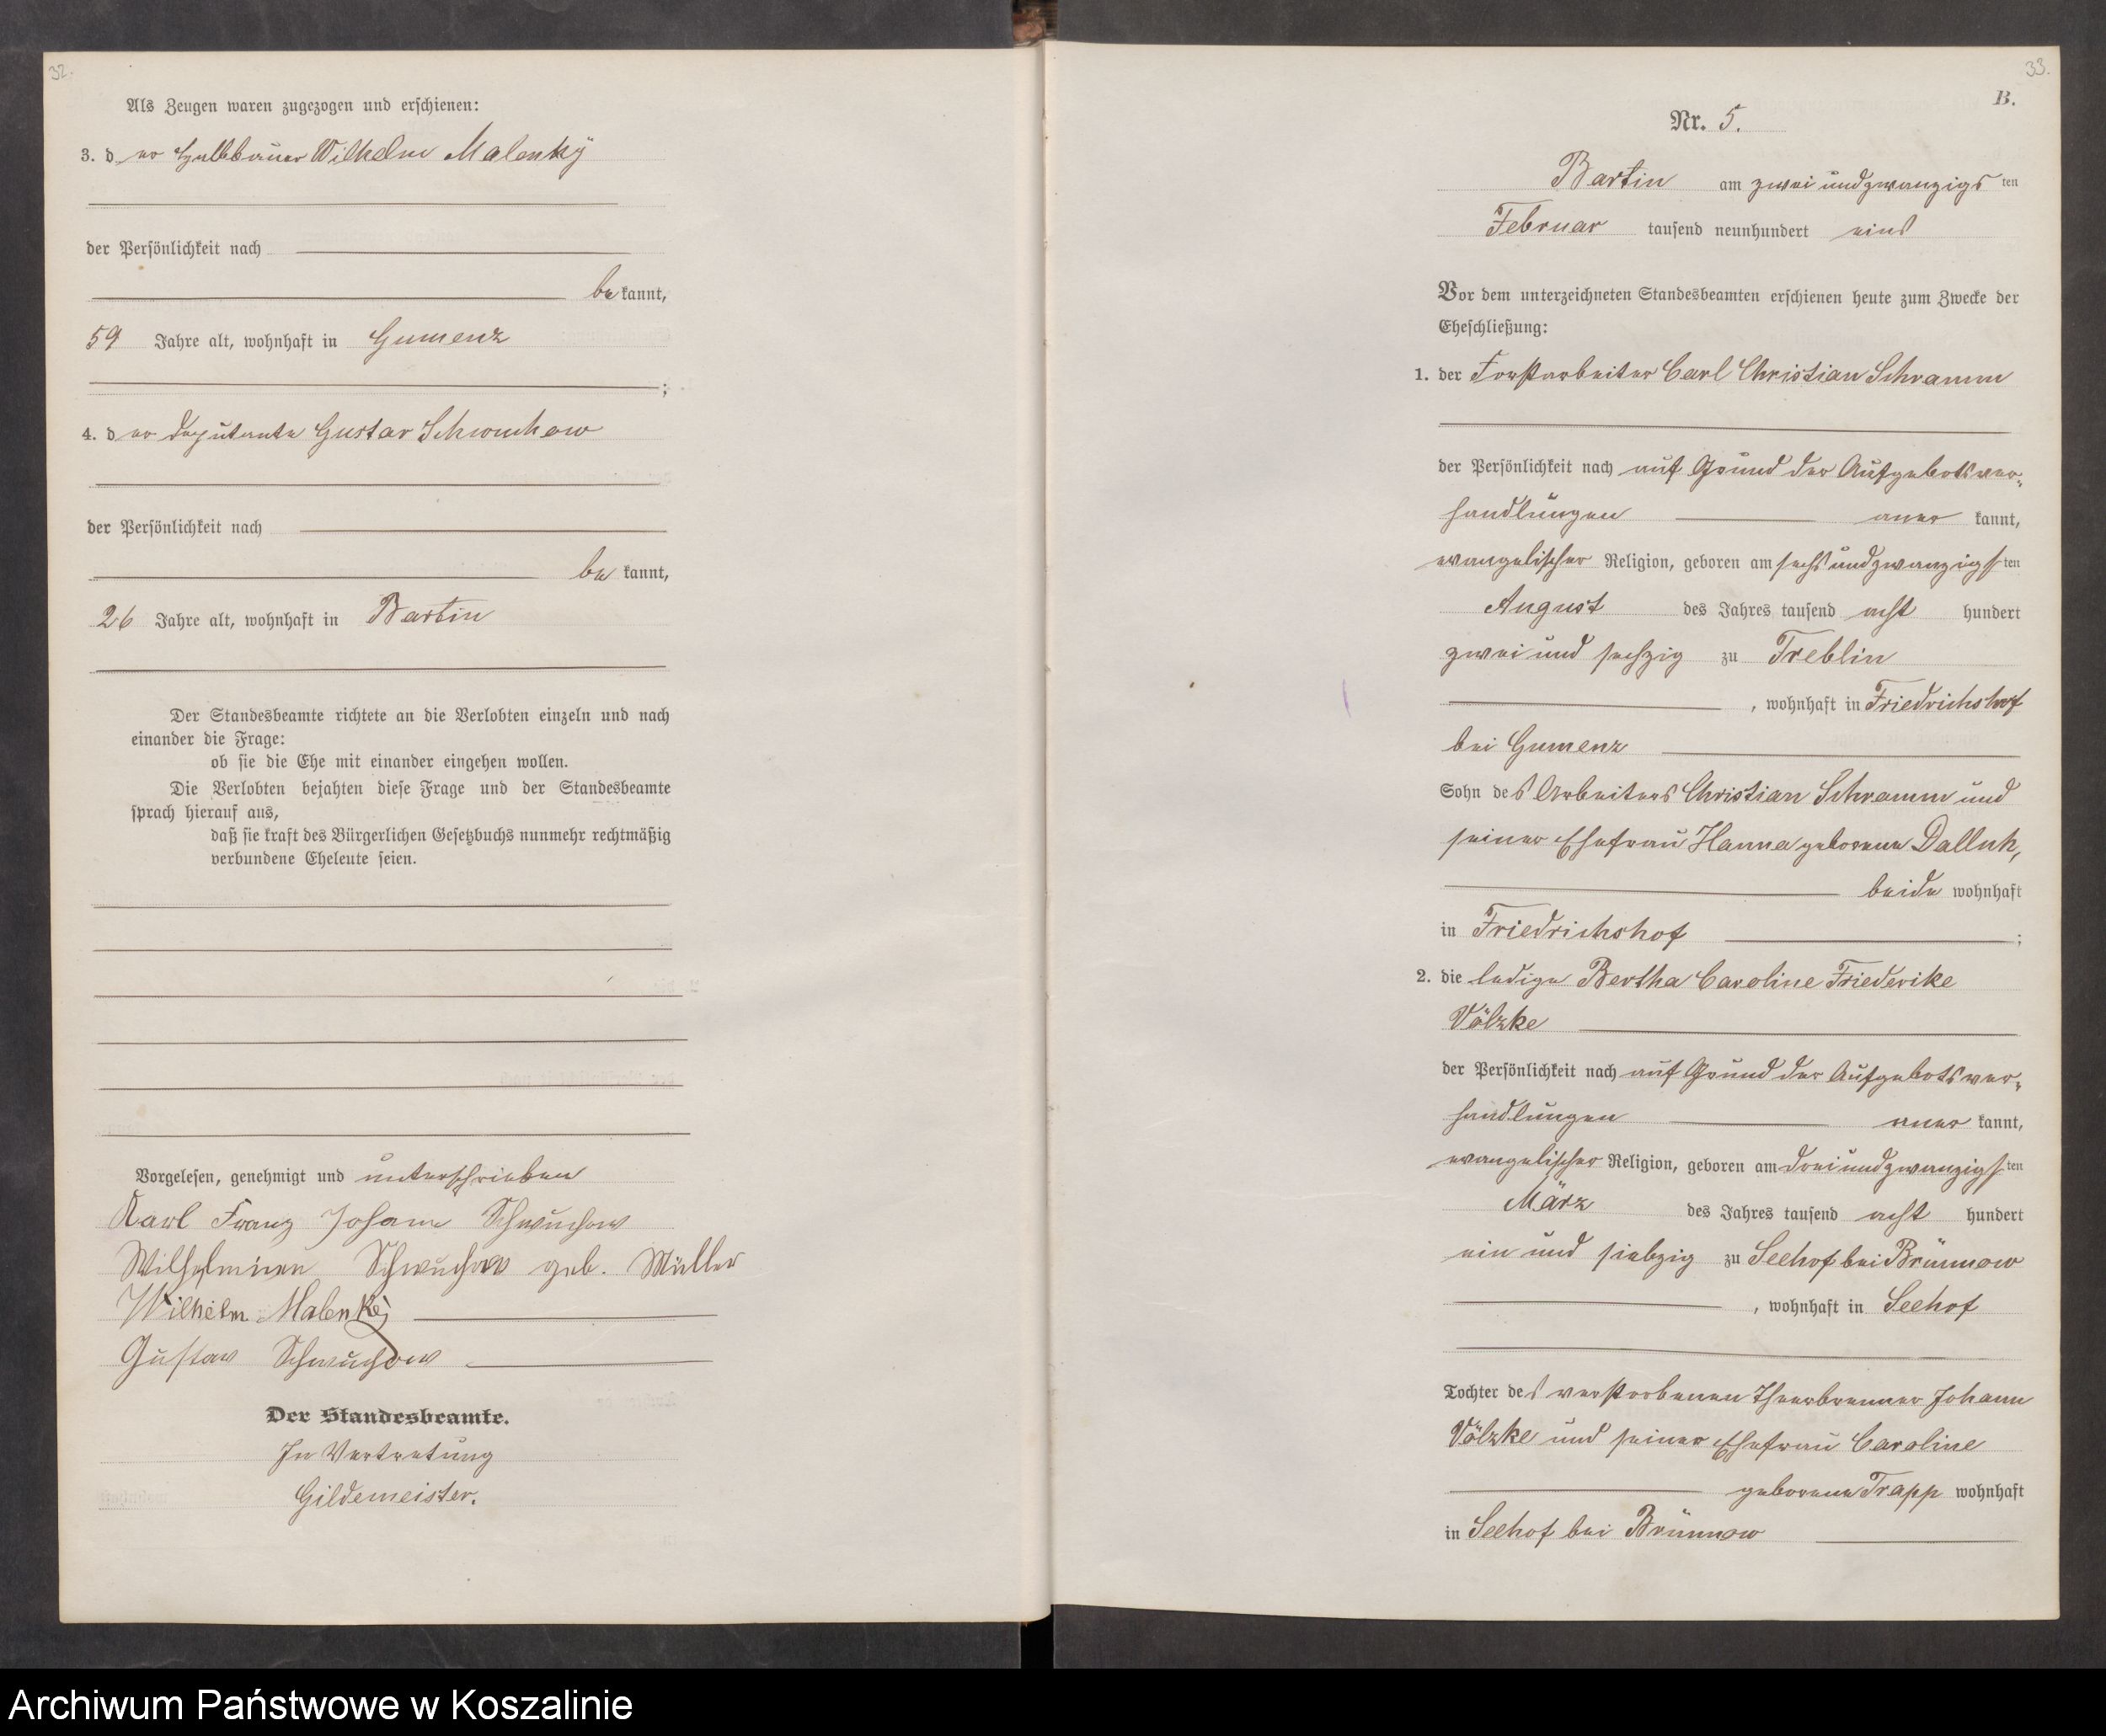 32.
Als Zeugen waren zugezogen und erschienen:
3. der Halbbauer Wilhelm Malenký
der Persönlichkeit nach
bekannt,
59 Jahre alt, wohnhaft in Gumenz
;
4. der Deputante Gustav Schwuchow
der Persönlichkeit nach
bekannt,
26 Jahre alt, wohnhaft in Bartin
Der Standesbeamte richtete an die Verlobten einzeln und nach
einander die Frage:
ob sie die Ehe mit einander eingehen wollen.
Die Verlobten bejahten diese Frage und der Standesbeamte
sprach hierauf aus,
daß sie kraft des Bürgerlichen Gesetzbuchs nunmehr rechtmäßig
verbundene Eheleute seien.
Vorgelesen, genehmigt und unterschrieben
Karl Franz Johann Schwuchow
Schwuchow geb. Müller
Wilhelm Malenké
Gustav Schwuchow
Der Standesbeamte.
In Vertretung
Gildemeister.
33.
B.
Nr. 5.
Bartin am zwei und zwanzigsten
Februar tausend neunhundert eins
Vor dem unterzeichneten Standesbeamten erschienen heute zum Zwecke der
Eheschließung:
1. der Forstarbeiter Carl Christian Schramm
der Persönlichkeit nach auf Grund der Aufgebotsver-
handlungen anerkannt,
evangelischer Religion, geboren am sechs und zwanzigsten
August des Jahres tausend acht hundert
zwei und sechzig zu Treblin
, wohnhaft in Friedrichshof
bei Gumenz
Sohn des Arbeiters Christian Schramm und
seiner Ehefrau Hanna geborene
beide wohnhaft
in Friedrichshof ;
2. die ledige Bertha Caroline Friederike
Völzke
der Persönlichkeit nach auf Grund der Aufgebotsver-
handlungen anerkannt,
evangelischer Religion, geboren am drei und zwanzigsten
März des Jahres tausend acht hundert
ein und siebzig zu Seehof bei Brünnow
, wohnhaft in Seehof
Tochter des verstorbenen Theerbrenner Johann
Völzke und seiner Ehefrau Caroline
geborene Trapp wohnhaft
in Seehof bei Brünnow
Archiwum Państwowe w Koszalinie